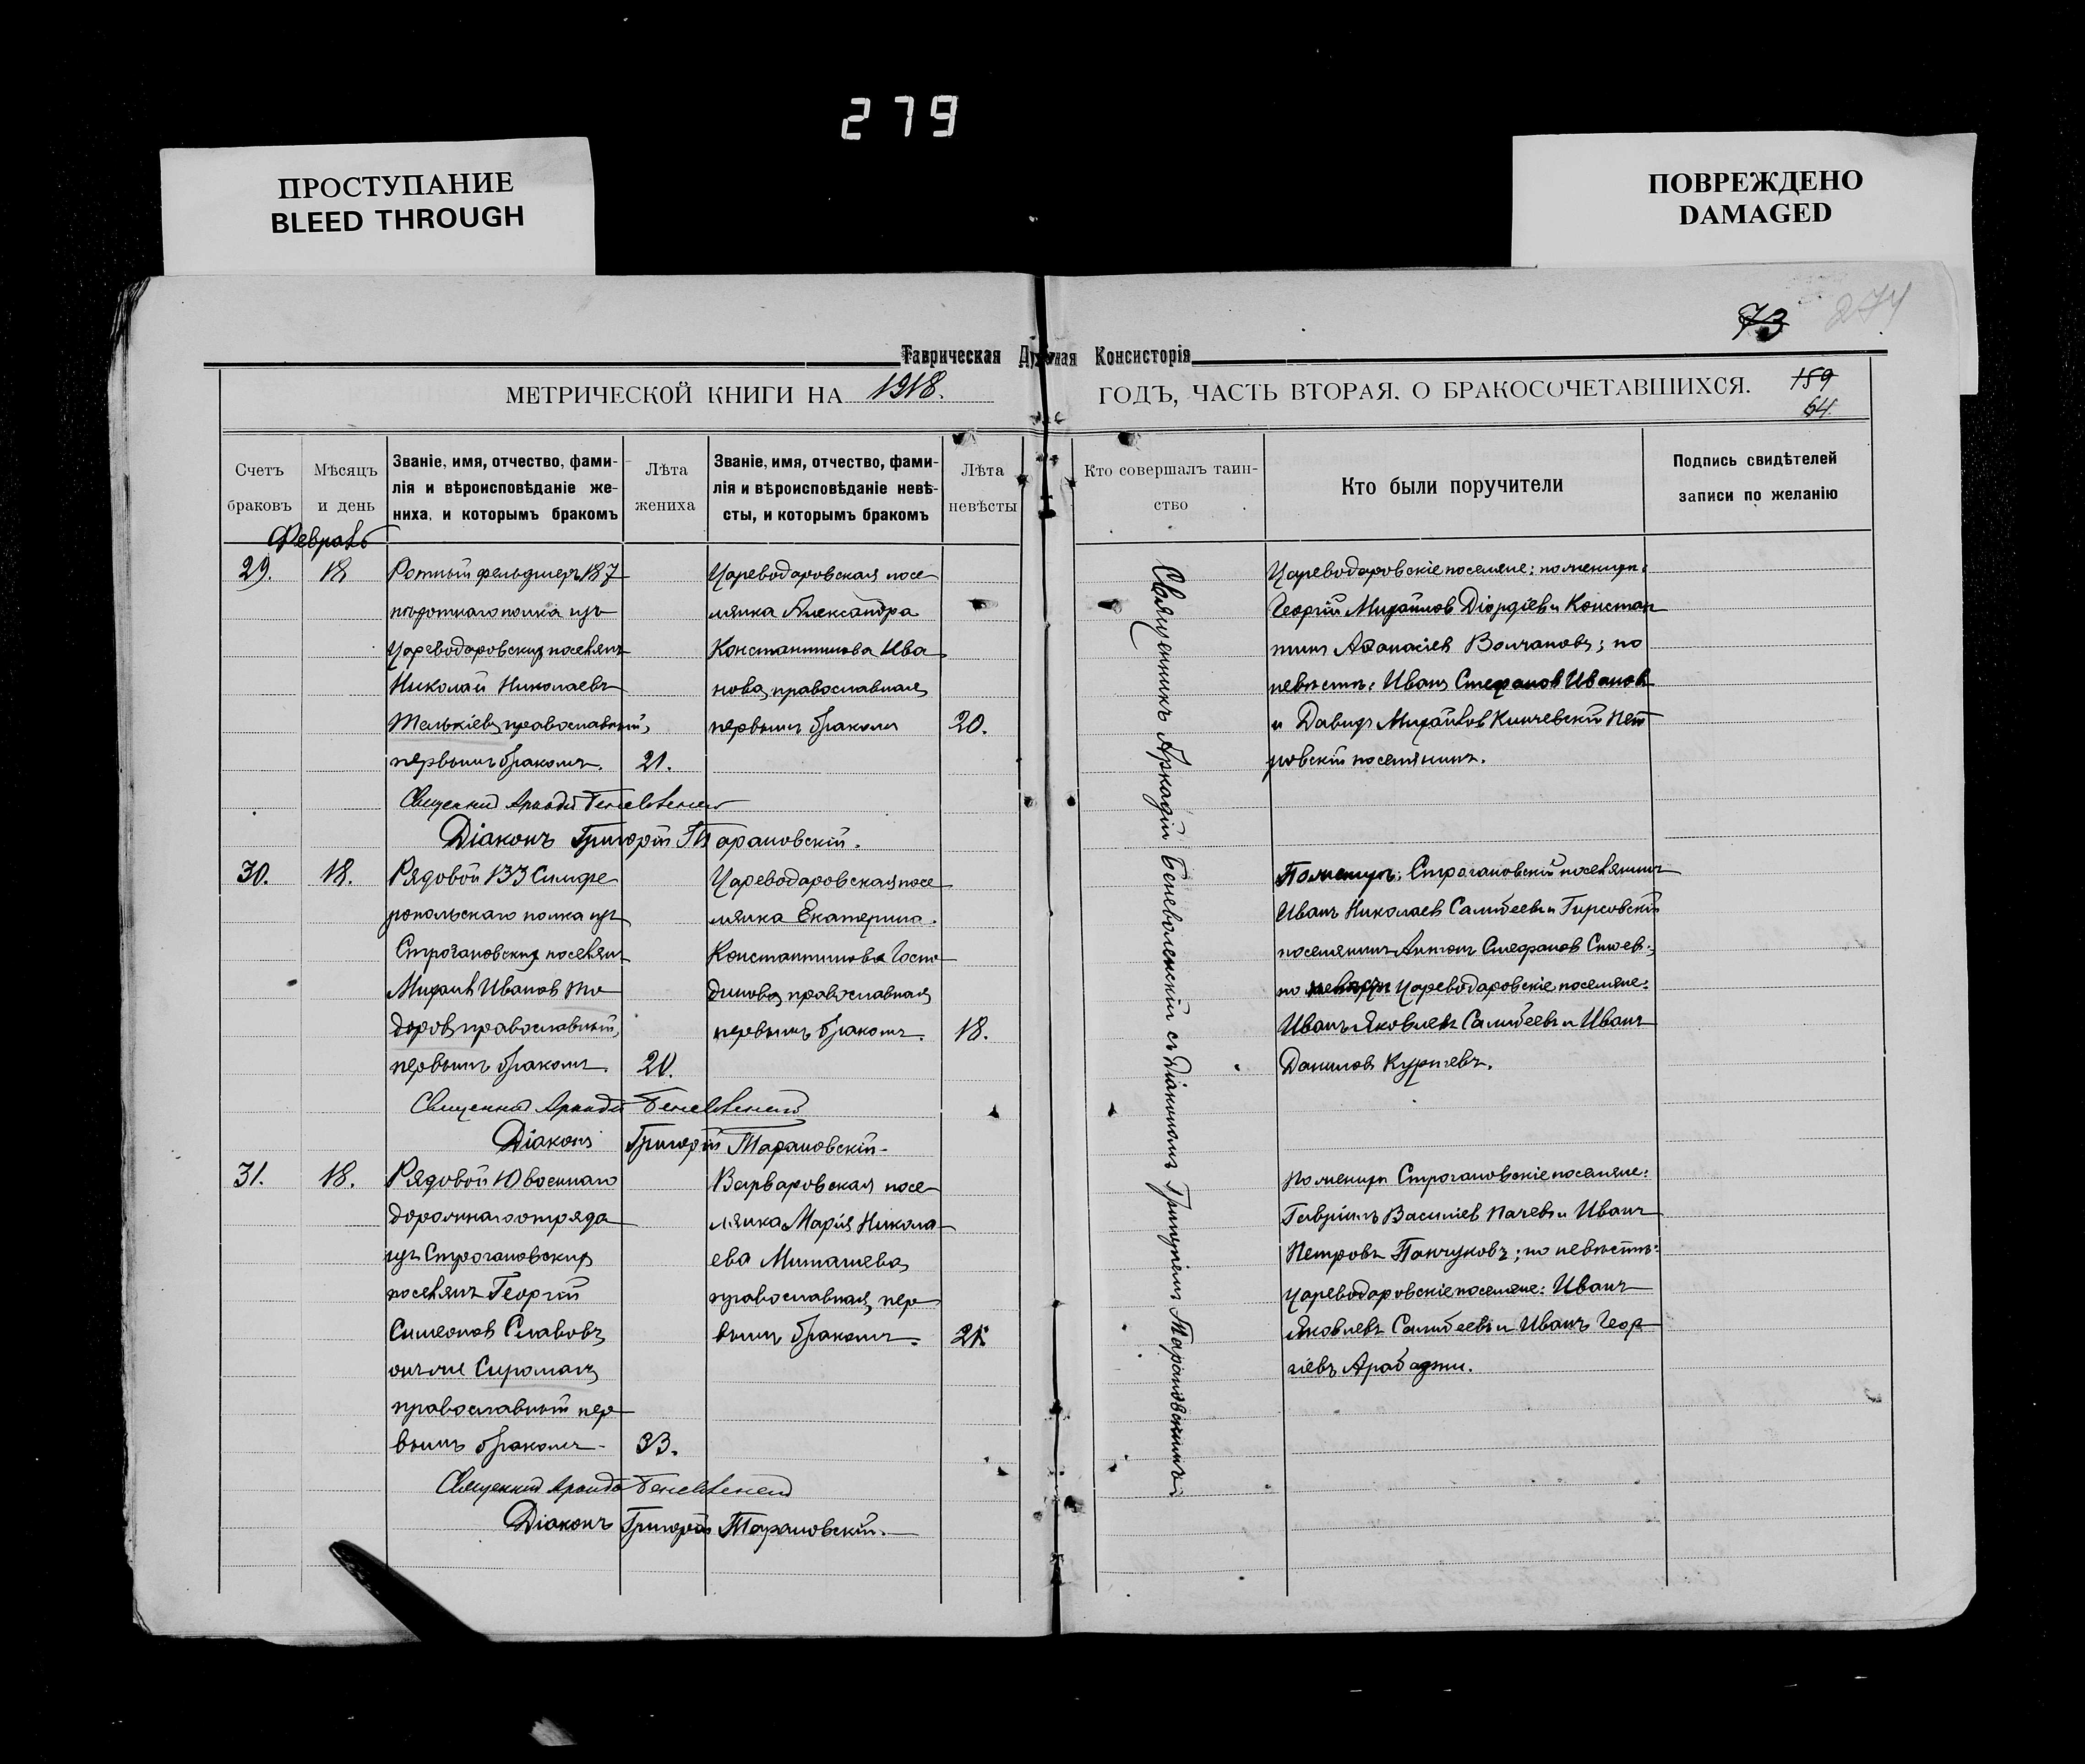 279
ПРОСТУПАНИЕ
BLEED THROUGH
ПОВРЕЖДЕНО
DAMAGED
73 274
Таврическая Духовная Консисторія
МЕТРИЧЕСКОЙ КНИГИ НА 1918. ГОДЪ, ЧАСТЬ ВТОРАЯ, О БРАКОСОЧЕТАВШИХСЯ.
159
64
Счетъ браковъ
Мѣсяцъ и день
Званіе, имя, отчество, фами-
лія и вѣроисповѣданіе же-
ниха, и которымъ бракомъ
Лѣта жениха
Званіе, имя, отчество, фами-
лія и вѣроисповѣданіе невѣ-
сты, и которымъ бракомъ
Лѣта невѣсты
Кто совершалъ таин-
ство
Кто были поручители
Подпись свидѣтелей
записи по желанію
Февраль
29. 18
Ротный фельдшеръ 187
пѣхотнаго полка изъ
Цареводаровскихъ поселянъ
Николай Николаевъ
православный,
первымъ бракомъ. 21.
Цареводаровская посе
лянка Александра
Константинова Ива
нова, православная,
первымъ бракомъ 20.
Священникъ Аркадій Беневоленскій съ Діакономъ Григоріемъ Тарановскимъ
Цареводаровскіе поселяне: по женихѣ:
Георгій Михаиловъ Діордіевъ и Констан
тинъ Аѳанасіевъ Волчановъ; по
невѣстѣ: Иванъ Стефановъ Ивановъ
и Давидъ Михаиловъ Кинчевскій Пет
ровскій поселянинъ.
Священникъ Аркадій Беневоленскій
Діаконъ Григорій Тарановскій.
30. 18.
Рядовой 133 Симфе
ропольскаго полка изъ
Строгановскихъ поселянъ
Михаилъ Ивановъ То
доровъ, православный,
первымъ бракомъ 20.
Цареводаровская посе
лянка Екатерина
Константинова Госпо
динова, православная,
первымъ бракомъ. 18.
По женихѣ: Строгановскій поселянинъ
Иванъ Николаевъ Самбеевъ и Гирсовскій
поселянинъ Антонъ Стефановъ Стоевъ;
по невѣстѣ Цареводаровскіе поселяне:
Иванъ Яковлевъ Самбеевъ и Иванъ
Даниловъ Куртевъ.
Священникъ Аркадій Беневоленскій
Діаконъ Григорій Тарановскій.
31. 18.
Рядовой 10 военнаго
дорожнаго отряда
изъ Строгановскихъ
поселянъ Георгій
Симеоновъ Славовъ,
онъ же Сиромахъ,
православный пер
вымъ бракомъ. 33.
Варваровская посе
лянка Марія Никола
ева Миташева,
православная, пер
вымъ бракомъ. 21.
По женихѣ Строгановскіе поселяне:
Гавріилъ Василіевъ Пачевъ и Иванъ
Петровъ Панчуковъ; по невѣстѣ:
Цареводаровскіе поселяне: Иванъ
Яковлевъ Самбеевъ и Иванъ Геор
гіевъ Арабаджи.
Священникъ Аркадій Беневоленскій
Діаконъ Григорій Тарановскій.